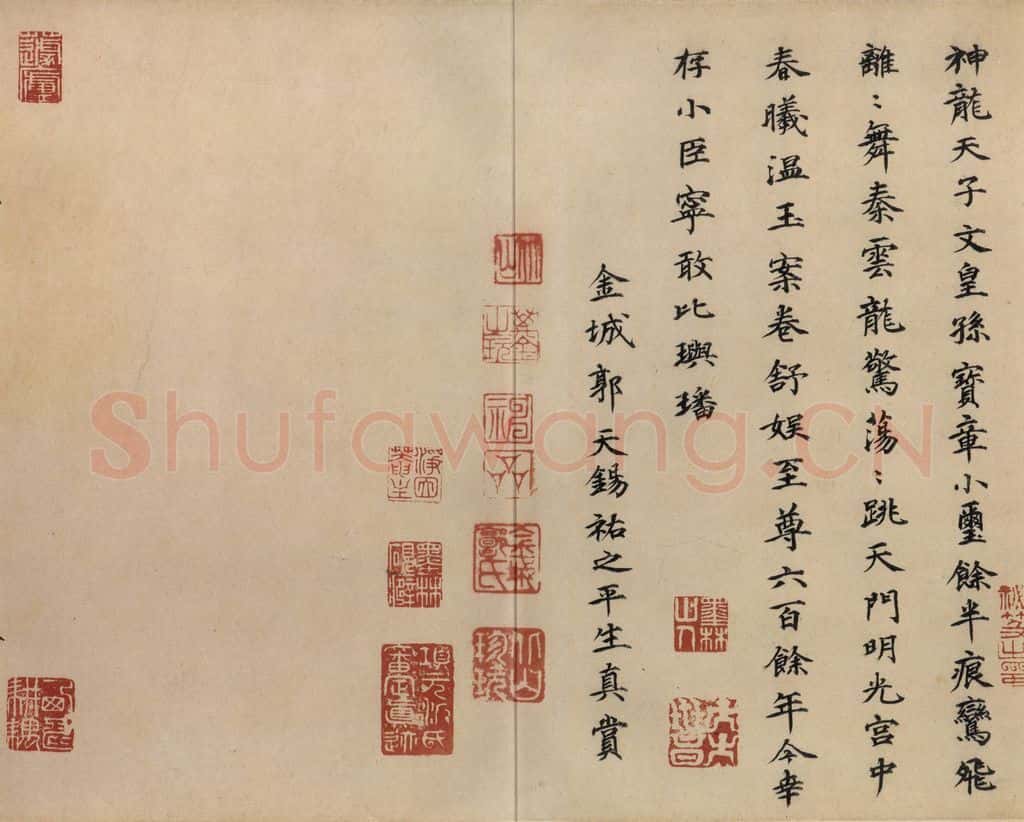 神龍天子文皇孫寶章小璽餘半痕鸞飛
離〻舞秦雲龍驚蕩〻跳天門明光宫中
春曦温玉案卷舒娱至尊六百餘年今幸
存小臣寧敢比璵璠
金城郭天錫祐之平生真賞
金城郭氏
項元汴氏審定真迹
墨林山人
Shufawang.CN